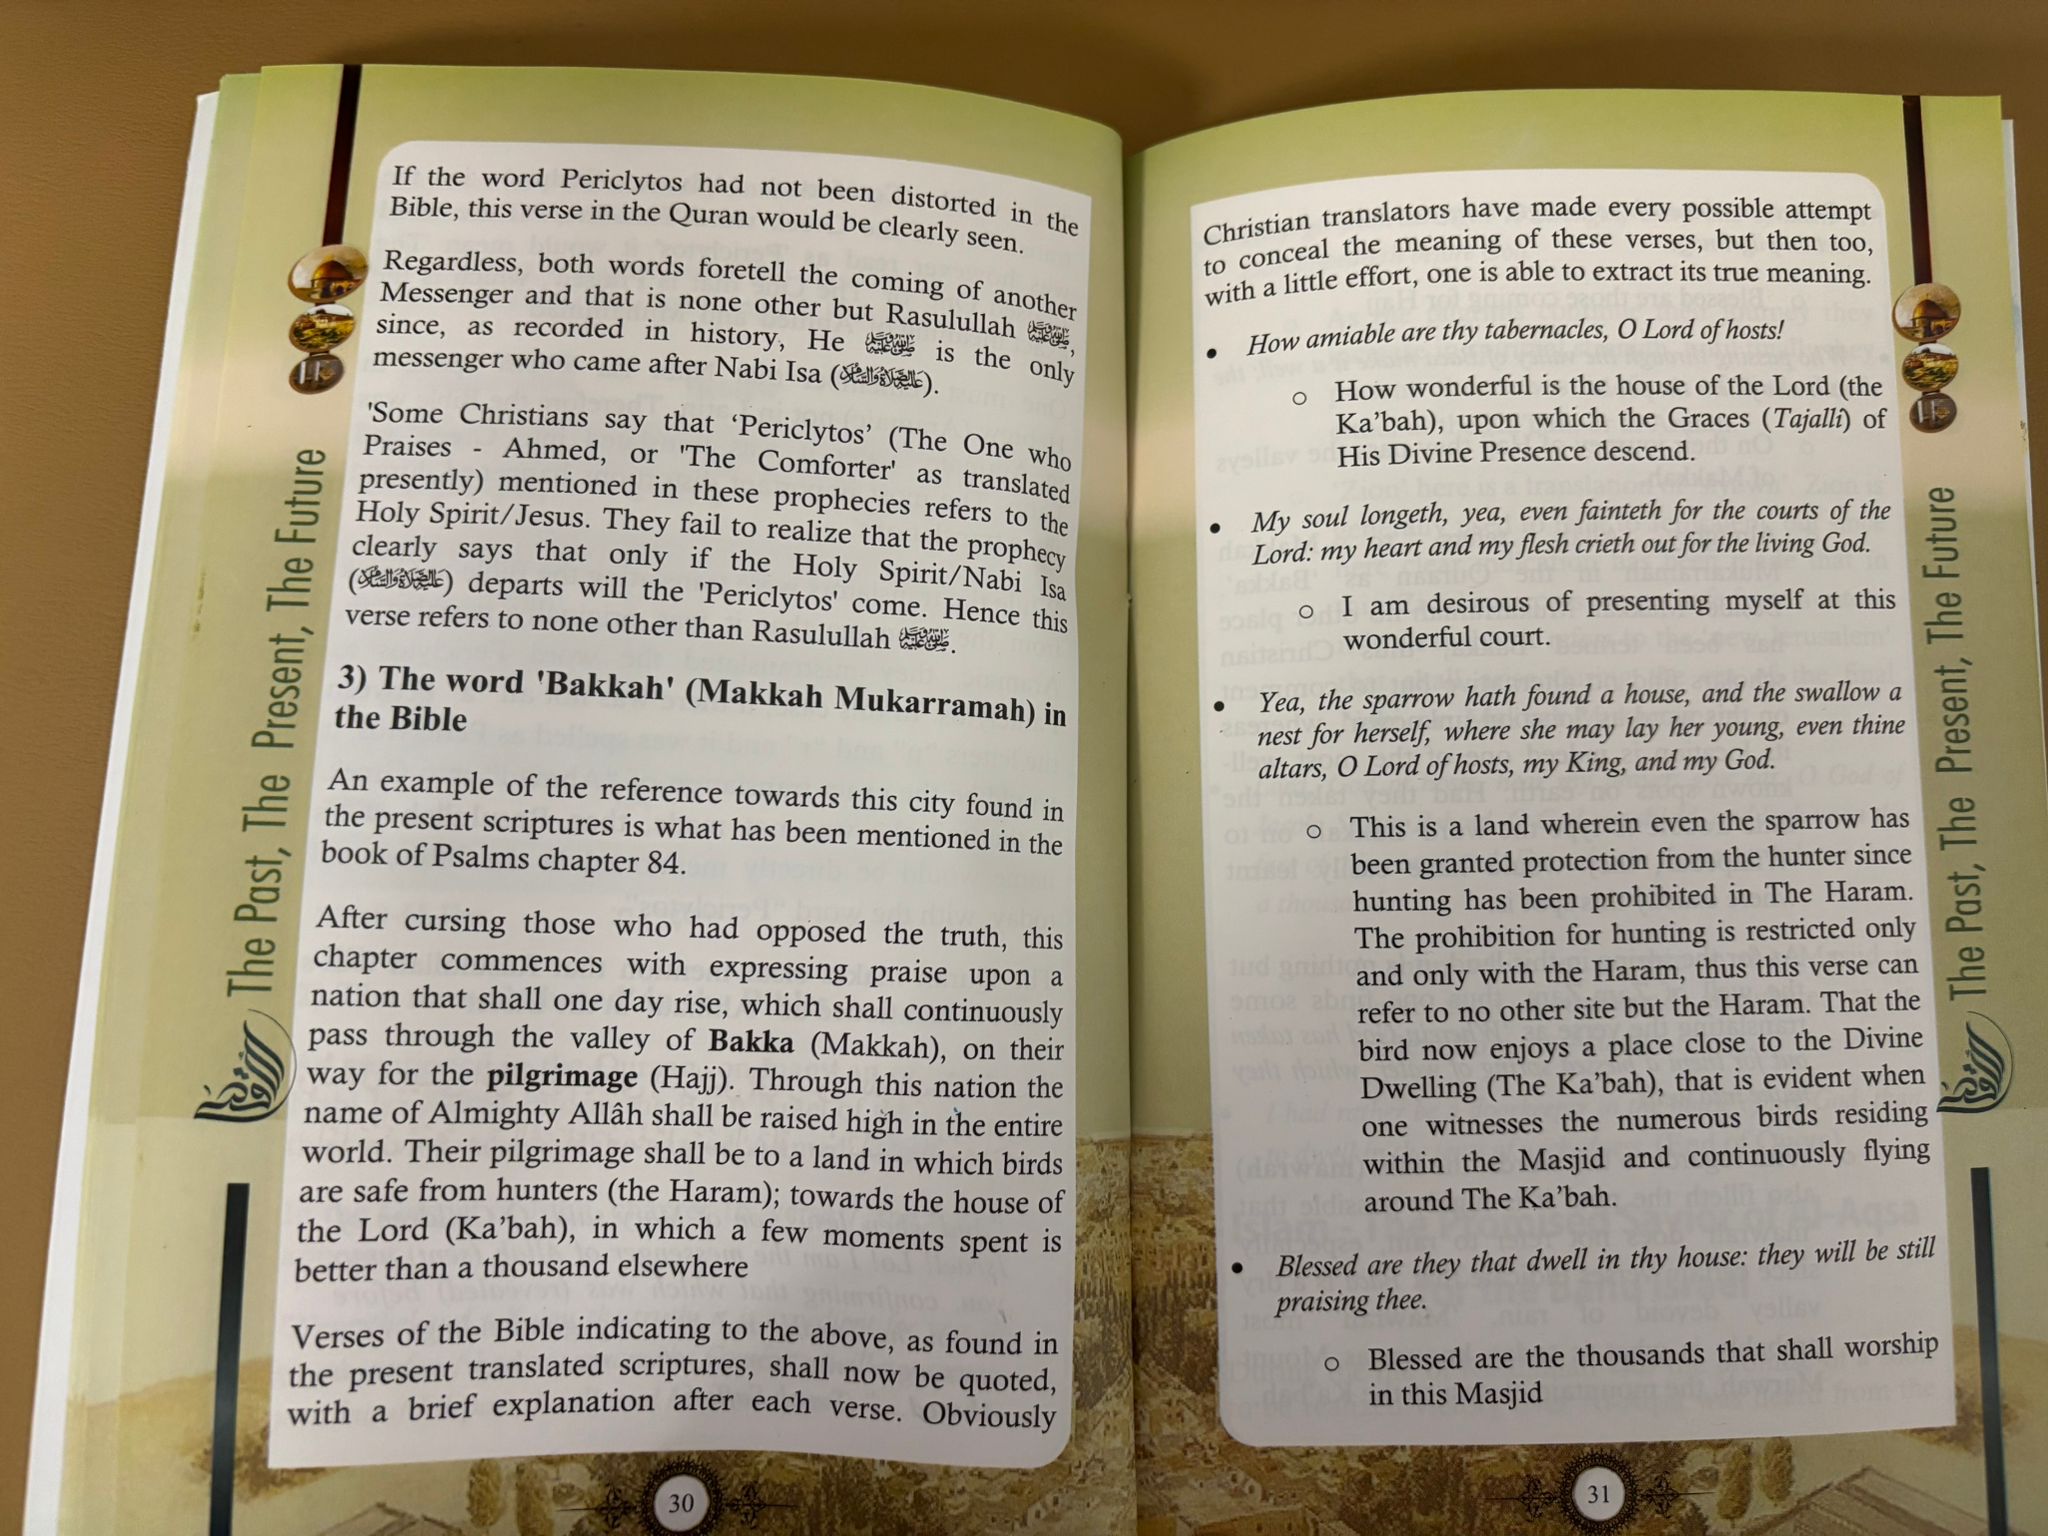 If the word Periclytos had not been distorted in the
Bible, this verse in the Quran would be clearly seen.
Regardless, both words foretell the coming of another
Messenger and that is none other but Rasulullah ﷺ,
since, as recorded in history, He ﷺ is the only
messenger who came after Nabi Isa (عليه الصلاة والسلام).
'Some Christians say that ‘Periclytos’ (The One who
Praises - Ahmed, or 'The Comforter' as translated
presently) mentioned in these prophecies refers to the
Holy Spirit/Jesus. They fail to realize that the prophecy
clearly says that only if the Holy Spirit/Nabi Isa
(عليه الصلاة والسلام) departs will the 'Periclytos' come. Hence this
verse refers to none other than Rasulullah ﷺ.
3) The word 'Bakkah' (Makkah Mukarramah) in
the Bible
An example of the reference towards this city found in
the present scriptures is what has been mentioned in the
book of Psalms chapter 84.
After cursing those who had opposed the truth, this
chapter commences with expressing praise upon a
nation that shall one day rise, which shall continuously
pass through the valley of Bakka (Makkah), on their
way for the pilgrimage (Hajj). Through this nation the
name of Almighty Allâh shall be raised high in the entire
world. Their pilgrimage shall be to a land in which birds
are safe from hunters (the Haram); towards the house of
the Lord (Ka’bah), in which a few moments spent is
better than a thousand elsewhere
Verses of the Bible indicating to the above, as found in
the present translated scriptures, shall now be quoted,
with a brief explanation after each verse. Obviously
30
The Past, The Present, The Future
Christian translators have made every possible attempt
to conceal the meaning of these verses, but then too,
with a little effort, one is able to extract its true meaning.
• How amiable are thy tabernacles, O Lord of hosts!
o How wonderful is the house of the Lord (the
Ka’bah), upon which the Graces (Tajalli) of
His Divine Presence descend.
• My soul longeth, yea, even fainteth for the courts of the
Lord: my heart and my flesh crieth out for the living God.
o I am desirous of presenting myself at this
wonderful court.
• Yea, the sparrow hath found a house, and the swallow a
nest for herself, where she may lay her young, even thine
altars, O Lord of hosts, my King, and my God.
o This is a land wherein even the sparrow has
been granted protection from the hunter since
hunting has been prohibited in The Haram.
The prohibition for hunting is restricted only
and only with the Haram, thus this verse can
refer to no other site but the Haram. That the
bird now enjoys a place close to the Divine
Dwelling (The Ka’bah), that is evident when
one witnesses the numerous birds residing
within the Masjid and continuously flying
around The Ka’bah.
• Blessed are they that dwell in thy house: they will be still
praising thee.
o Blessed are the thousands that shall worship
in this Masjid
31
The Past, The Present, The Future